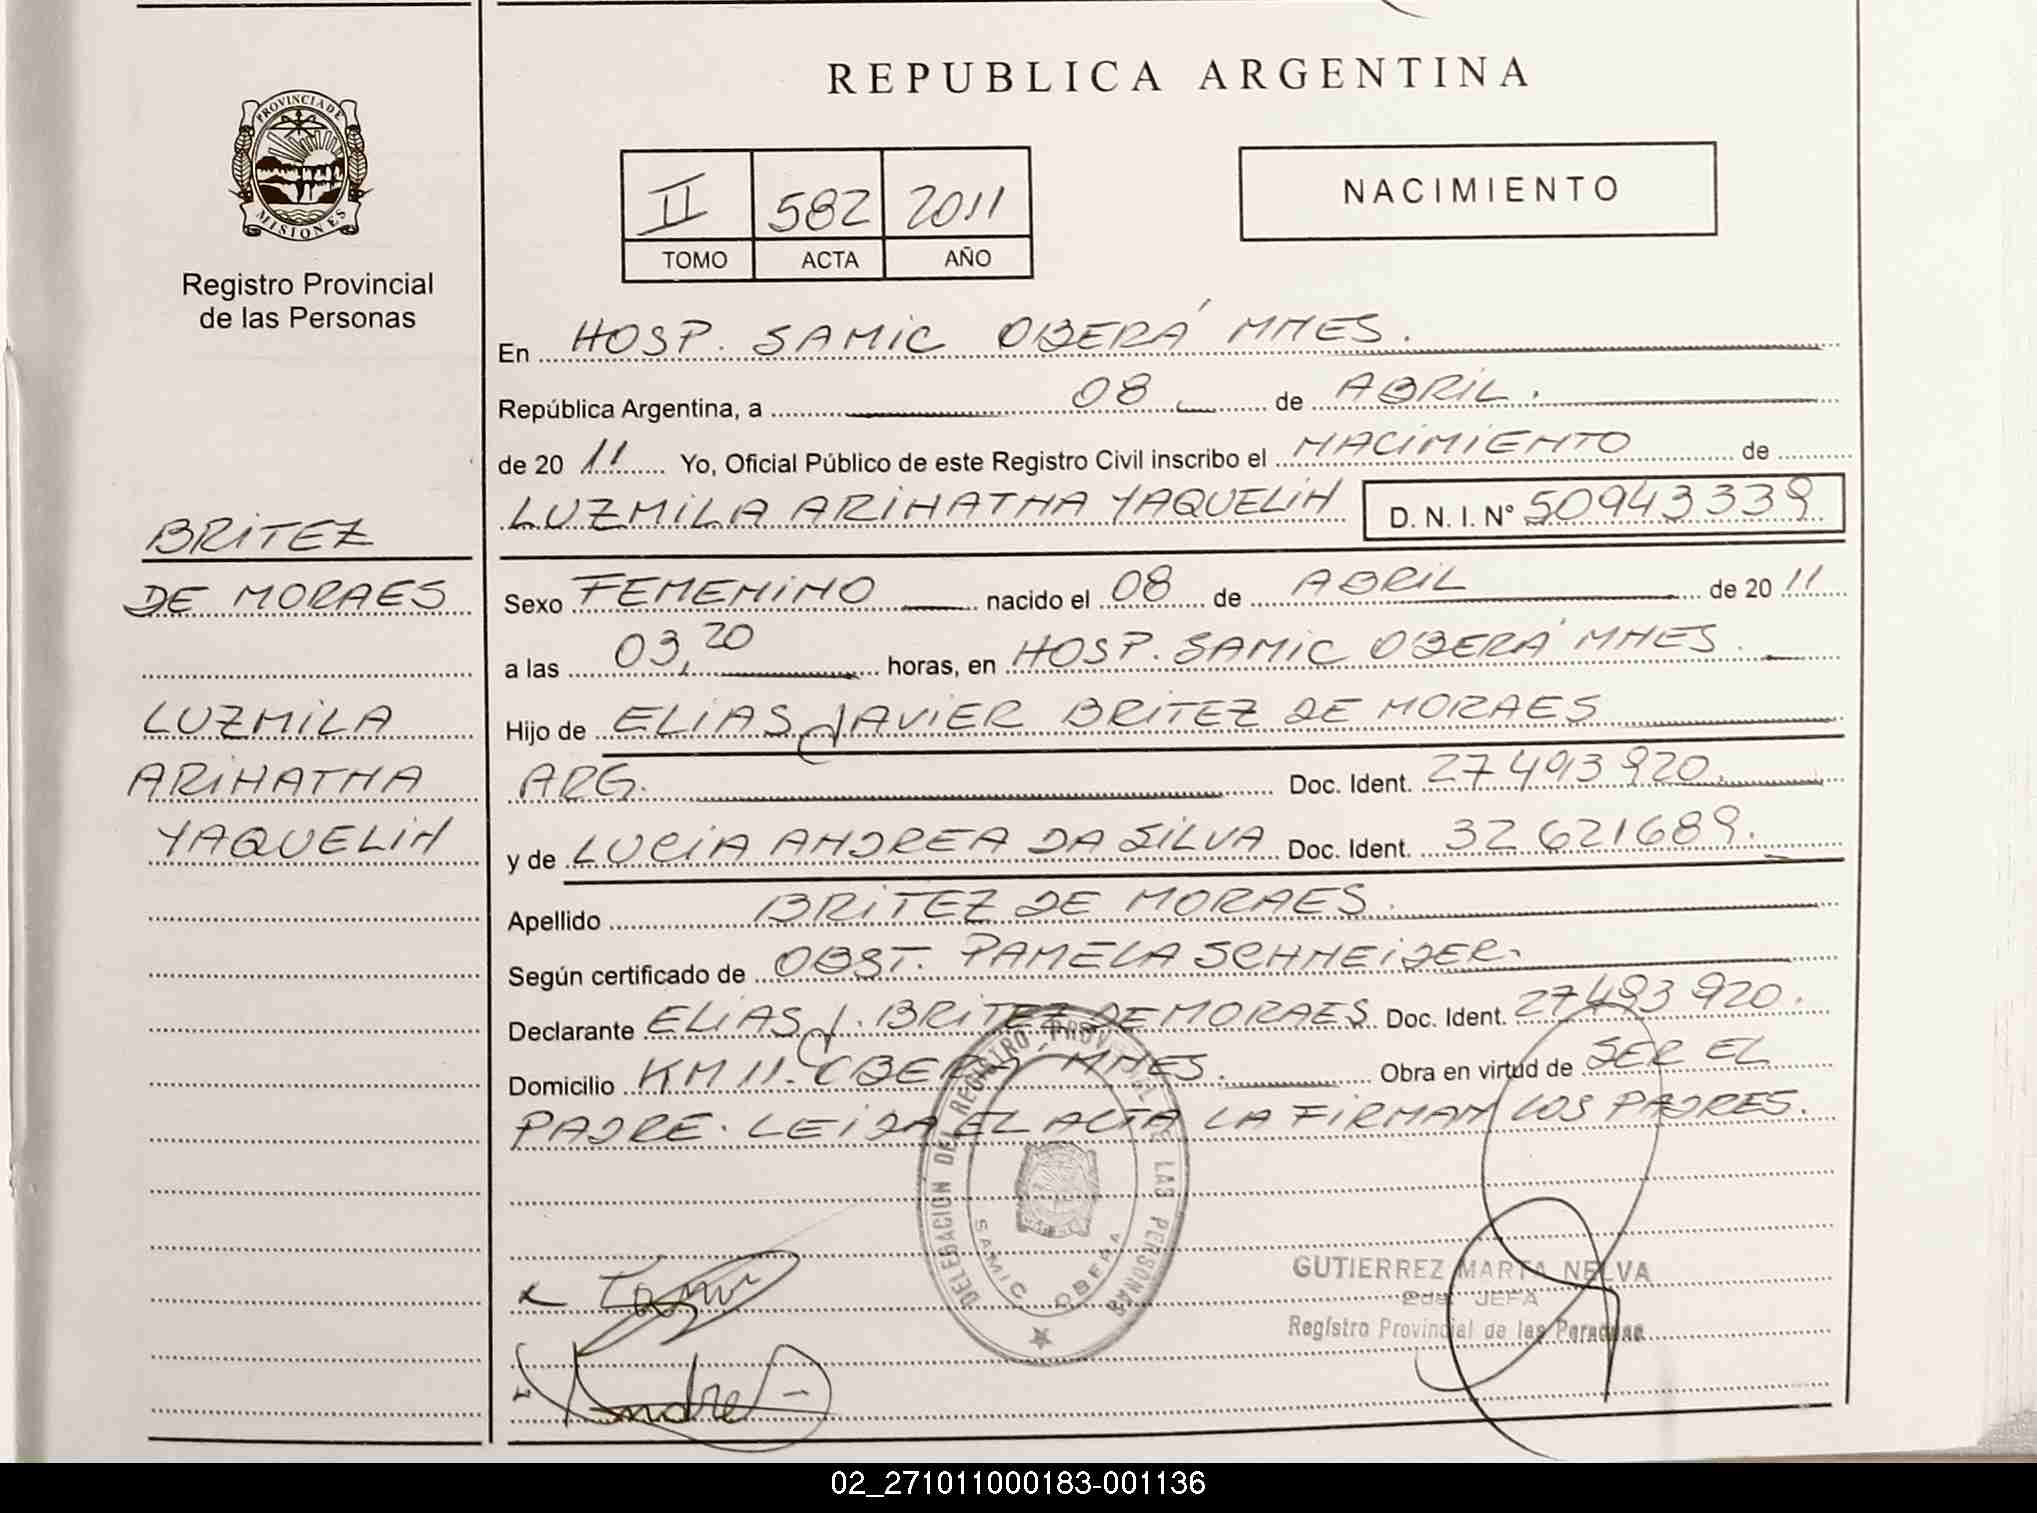 PROVINCIA DE
MISIONES
Registro Provincial
de las Personas
BRITEZ
DE MORAES
LUZMILA
ARIHATHA
YAQUELIN
REPUBLICA ARGENTINA
II 582 2011
TOMO ACTA AÑO
NACIMIENTO
En HOSP. SAMIC OBERÁ MNES.
República Argentina, a 08 de ABRIL.
de 20 11 Yo, Oficial Público de este Registro Civil inscribo el NACIMIENTO de
LUZMILA ARIHATHA YAQUELIN D. N. I. N° 50943339
Sexo FEMENINO nacido el 08 de ABRIL de 20 11
a las 03,20 horas, en HOSP. SAMIC OBERÁ MNES.
Hijo de ELIAS JAVIER BRITEZ DE MORAES
ARG. Doc. Ident. 27493920.
y de LUCIA ANDREA DA SILVA Doc. Ident. 32621689.
Apellido BRITEZ DE MORAES.
Según certificado de OBST. PAMELA SCHNEIDER.
Declarante ELIAS J. BRITEZ DE MORAES Doc. Ident. 27493920.
Domicilio KM 11. OBERÁ MNES. Obra en virtud de SER EL
PADRE. LEIDA EL ACTA LA FIRMAN LOS PADRES.
DELEGACION DEL REGISTRO PROVINCIAL DE LAS PERSONAS
SAMIC OBERA
GUTIERREZ MARTA NELVA
2da. JEFA
Registro Provincial de las Personas
Andre
02_271011000183-001136